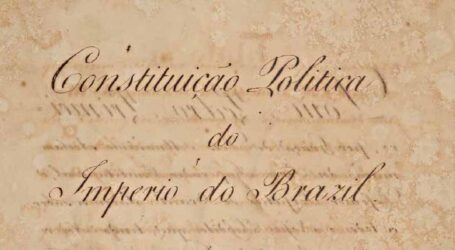 Constituição Politica
do
Imperio do Brazil